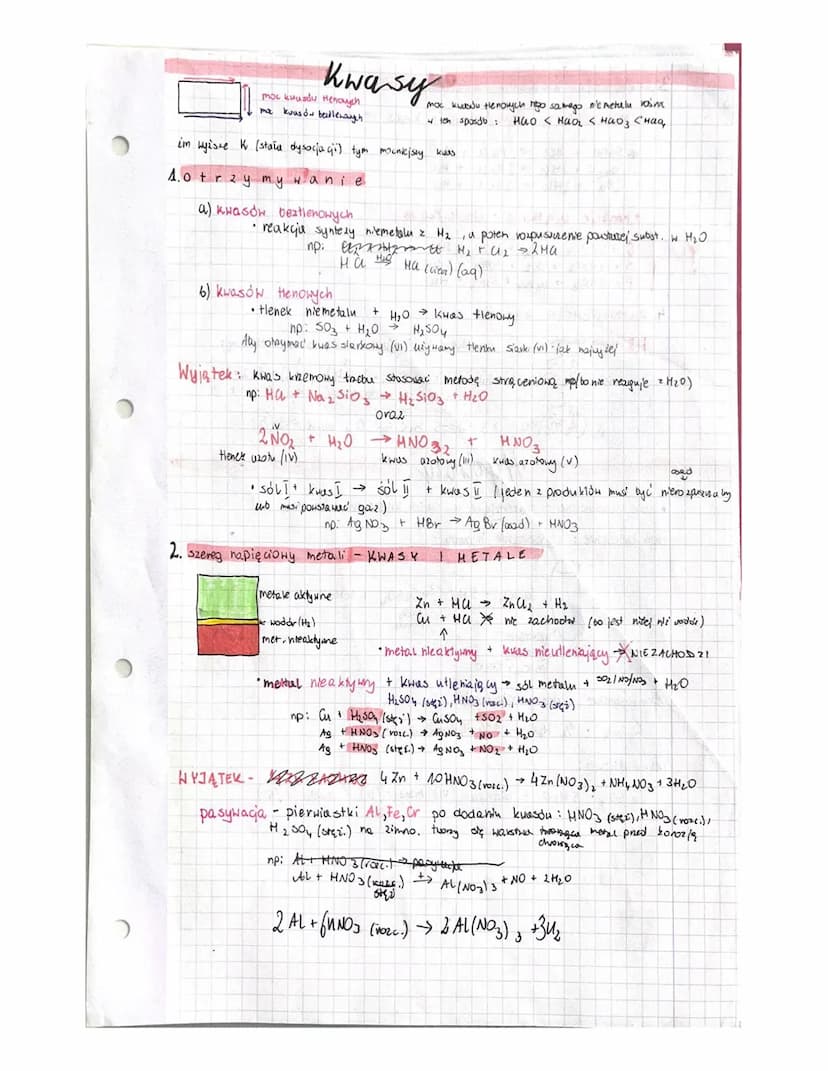 Kwasy
moc kwasów tlenowych
moc kwasów beztlenowych
moc kwasów tlenowych tego samego niemetalu rośnie
w ten sposób : HClO < HClO₂ < HClO₃ < HClO₄
im wyższe K (stała dysocjacji) tym mocniejszy kwas
1. otrzymywanie
a) kwasów beztlenowych
• reakcja syntezy niemetalu z H₂ , a potem rozpuszczenie powstałej subst. w H₂O
np: H₂ + Cl₂ → 2HCl
HCl →(H₂O) HCl (ciecz) (aq)
b) kwasów tlenowych
• tlenek niemetalu + H₂O → kwas tlenowy
np: SO₃ + H₂O → H₂SO₄
Aby otrzymać kwas siarkowy (VI) używamy tlenku siarki (VI) - jak najwyżej
Wyjątek: kwas krzemowy trzeba stosować metodę strąceniową np/bo nie reaguje z H₂O)
np: HCl + Na₂SiO₃ → H₂SiO₃ + H₂O
oraz
IV
2NO₂ + H₂O → HNO₂ + HNO₃
tlenek azotu (IV) kwas azotowy (III) kwas azotowy (V)
osad
• sól I + kwas I → sól II + kwas II (jeden z produktów musi być nierozpuszczalny
lub musi powstawać gaz)
np: AgNO₃ + HBr → AgBr (osad) + HNO₃
2. szereg napięciowy metali - KWASY I METALE
metale aktywne
← wodór (H₂)
met. nieaktywne
Zn + HCl → ZnCl₂ + H₂
Cu + HCl ↛ nie zachodzi (bo jest niżej niż wodór)
↑
• metal nieaktywny + kwas nieutleniający ↛ NIE ZACHODZI
• metal nieaktywny + kwas utleniający → sól metalu + SO₂/NO/NO₂ + H₂O
H₂SO₄ (stęż), HNO₃ (rozc.), HNO₃ (stęż)
np: Cu + H₂SO₄ (stęż) → CuSO₄ + SO₂ + H₂O
Ag + HNO₃ (rozc.) → AgNO₃ + NO + H₂O
Ag + HNO₃ (stęż.) → AgNO₃ + NO₂ + H₂O
WYJĄTEK - 4Zn + 10HNO₃ (rozc.) → 4Zn(NO₃)₂ + NH₄NO₃ + 3H₂O
pasywacja - pierwiastki Al, Fe, Cr po dodaniu kwasów : HNO₃ (stęż), HNO₃ (rozc.),
H₂SO₄ (stęż.) na zimno. tworzy się warstwa tworząca metal przed korozją
chroniąca
np: Al + HNO₃ (rozc.) → pasywacja
Al + HNO₃ (rozc.) →(t) Al(NO₃)₃ + NO + 2H₂O
stęż
2Al + 6HNO₃ (rozc.) → 2Al(NO₃)₃ + 3H₂